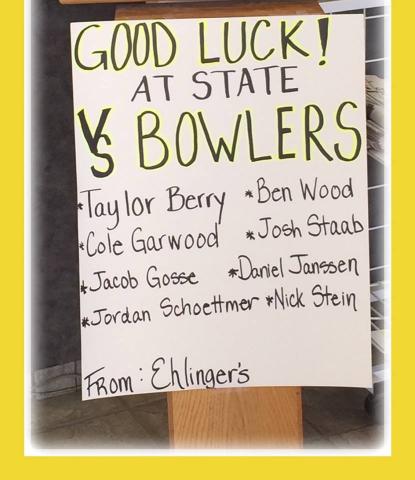 GOOD LUCK!
AT STATE
VS BOWLERS
*Taylor Berry *Ben Wood
*Cole Garwood *Josh Staab
*Jacob Gosse *Daniel Janssen
*Jordan Schoettmer *Nick Stein
From: Ehlinger's